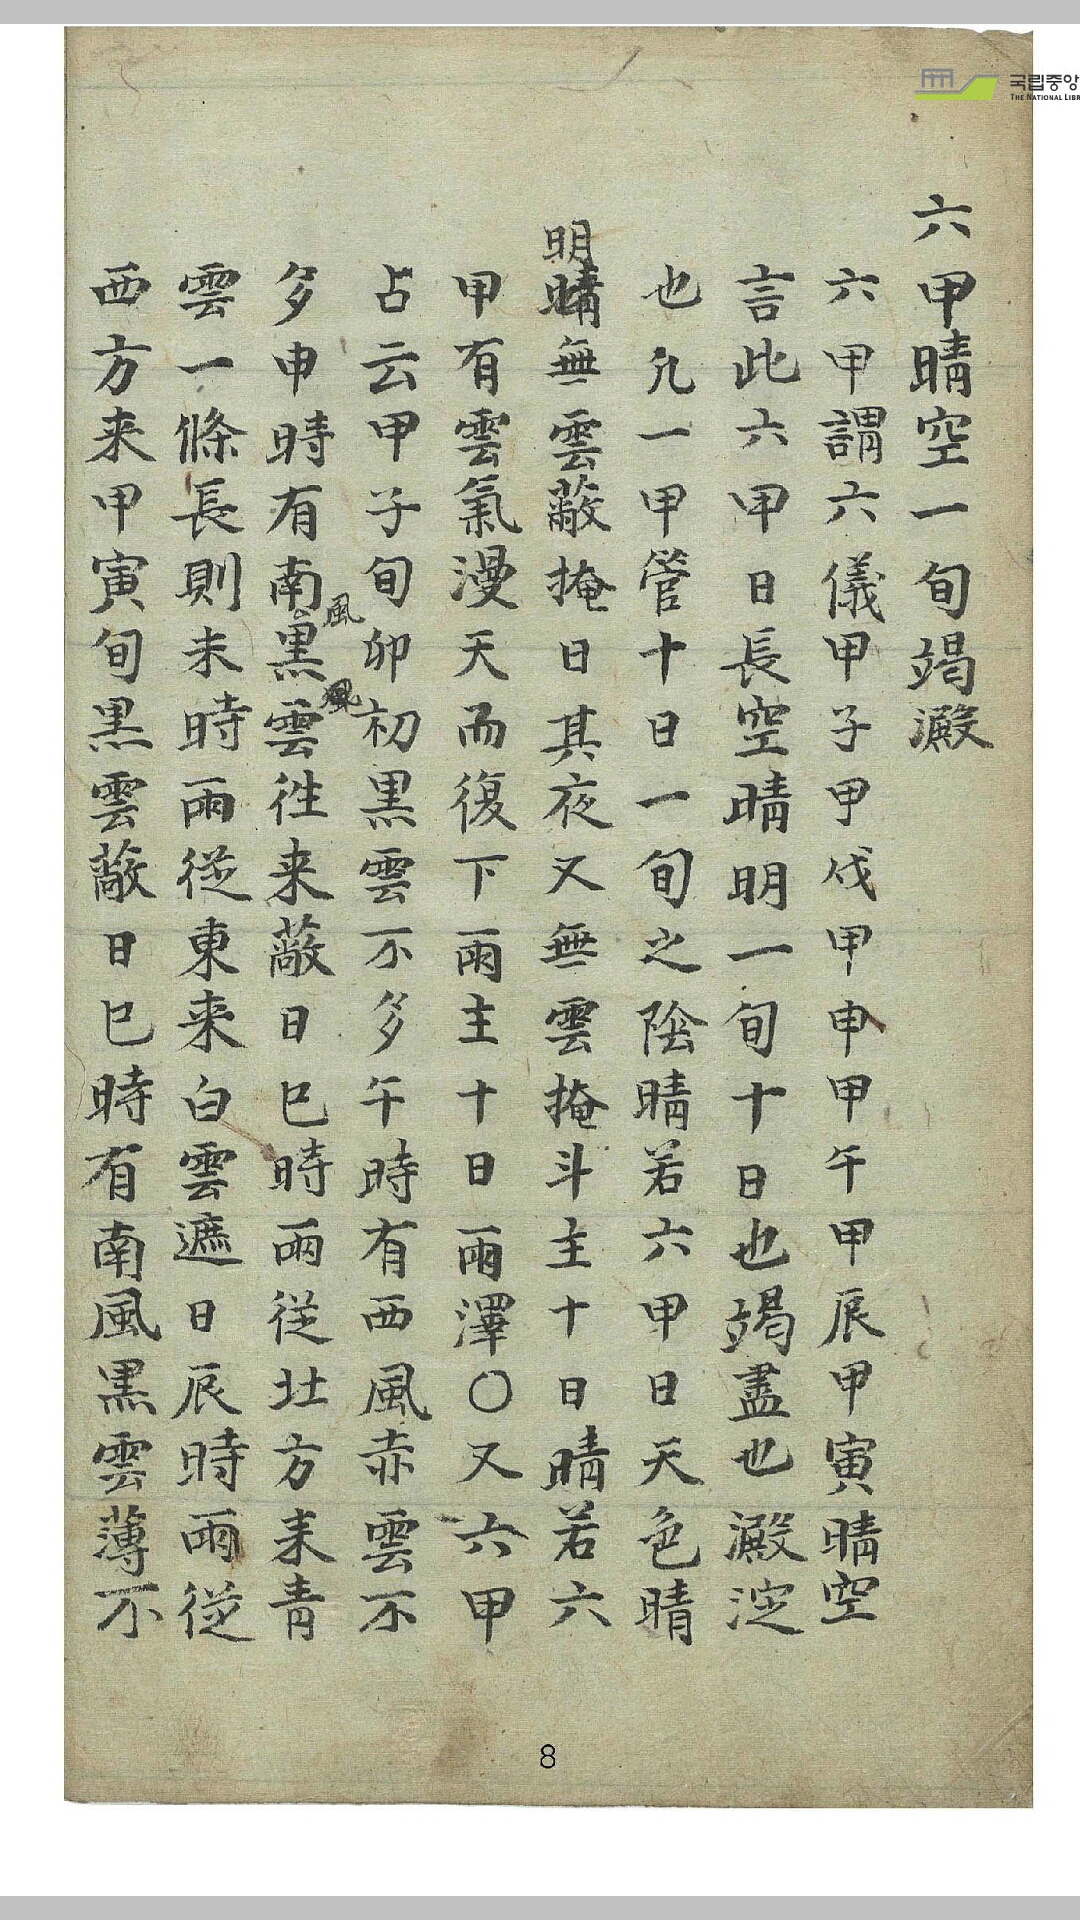 六甲晴空一旬竭澱
六甲謂六儀甲子甲戌甲申甲午甲辰甲寅晴空
言此六甲日長空晴明一旬十日也竭盡也澱淀
也凡一甲管十日一旬之陰晴若六甲日天色晴
明
晴無雲蔽掩日其夜又無雲掩斗主十日晴若六
甲有雲氣漫天而復下雨主十日雨澤〇又六甲
占云甲子旬卯初黒雲不多午時有西風赤雲不
多申時有南黒雲徃来蔽日巳時雨従北方来青
風
風
雲一條長則未時雨従東来白雲遮日辰時雨従
西方来甲寅旬黒雲蔽日巳時有南風黒雲薄不
8
국립중앙
THE NATIONAL LIBR